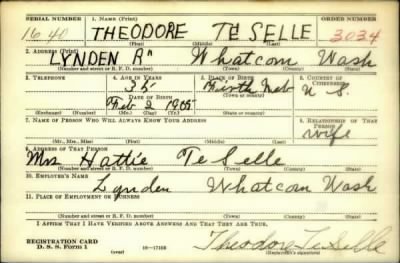 SERIAL NUMBER 1. NAME (Print) ORDER NUMBER
1640 THEODORE TE SELLE 3034
(First) (Middle) (Last)
2. ADDRESS (Print)
LYNDEN Rn Whatcom Wash
(Number and street or R. F. D. number) (Town) (County) (State)
3. TELEPHONE 4. AGE IN YEARS 5. PLACE OF BIRTH 6. COUNTRY OF CITIZENSHIP
35 Firth Neb U S.
DATE OF BIRTH (Town or county)
Feb 2 1905
(Exchange) (Number) (Mo.) (Day) (Yr.) (State or country)
7. NAME OF PERSON WHO WILL ALWAYS KNOW YOUR ADDRESS 8. RELATIONSHIP OF THAT PERSON
wife
(Mr., Mrs., Miss) (First) (Middle) (Last)
9. ADDRESS OF THAT PERSON
Mrs Hattie Te Selle
(Number and street or R. F. D. number) (Town) (County) (State)
10. EMPLOYER'S NAME
Lynden Whatcom Wash
11. PLACE OF EMPLOYMENT OR BUSINESS
(Number and street or R. F. D. number) (Town) (County) (State)
I AFFIRM THAT I HAVE VERIFIED ABOVE ANSWERS AND THAT THEY ARE TRUE.
REGISTRATION CARD
D. S. S. Form 1 (over) 16—17105 Theodore Te Selle
(Registrant's signature)